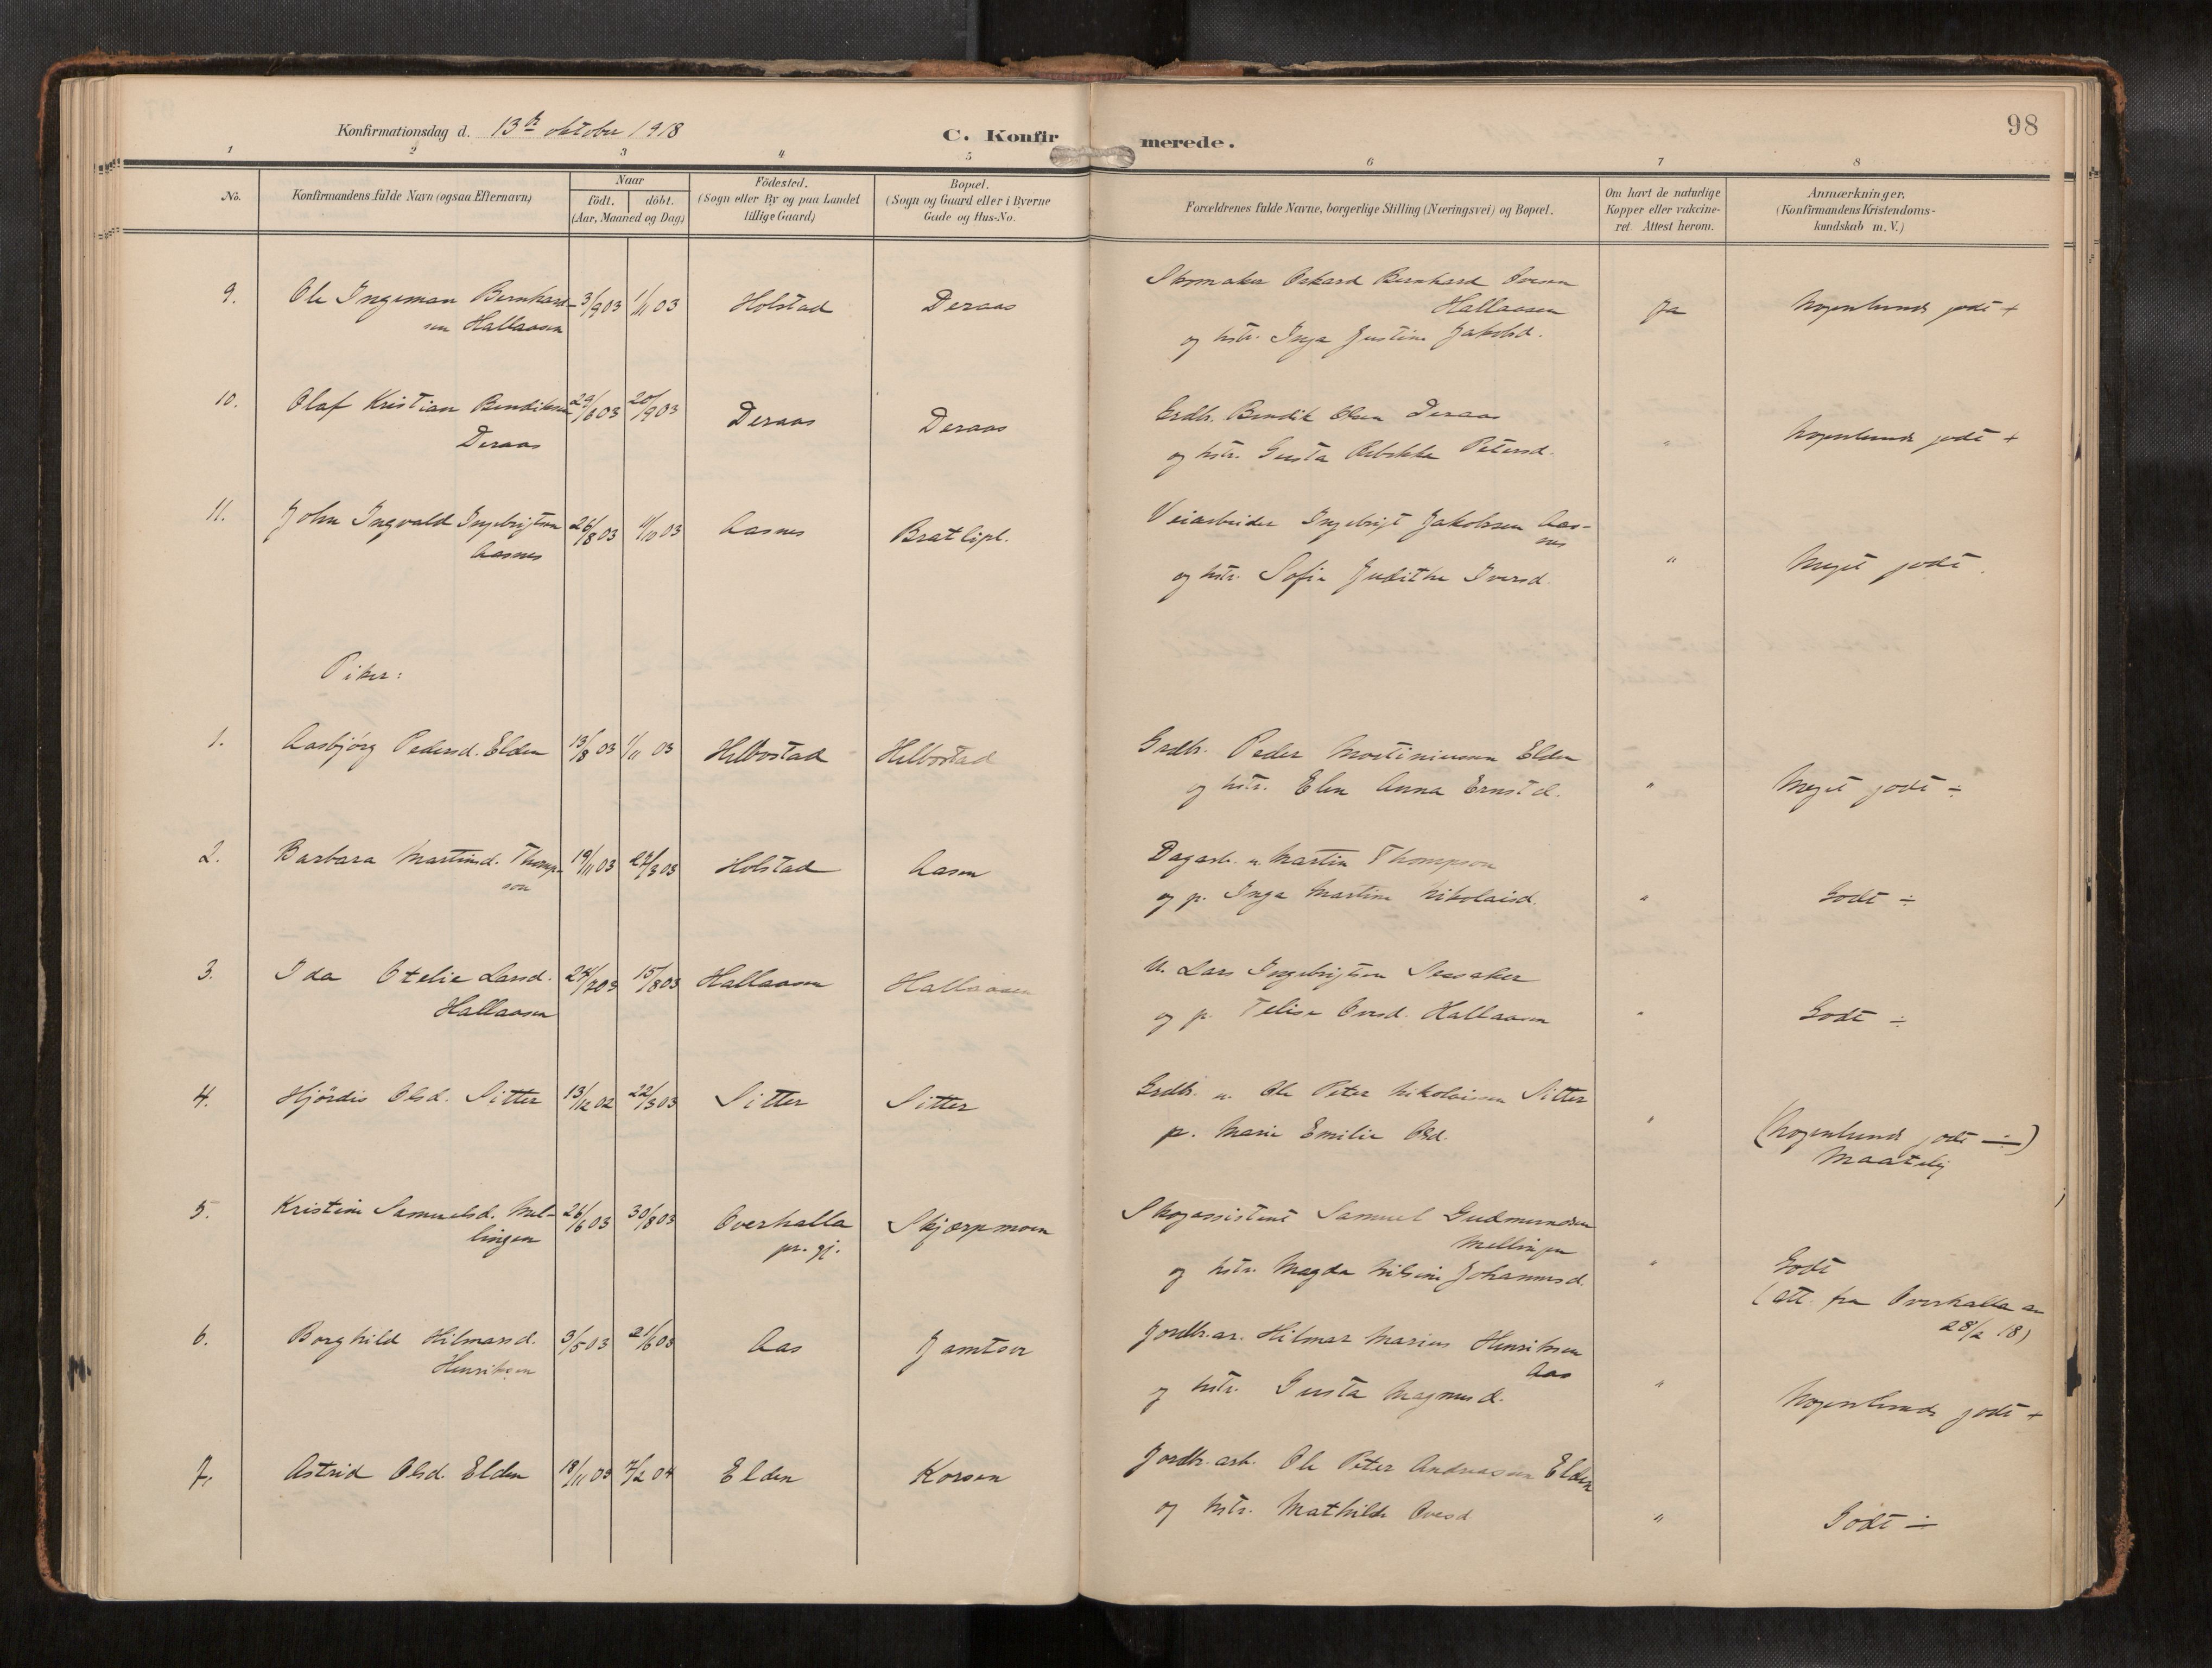 98
Konfirmationsdag d. 13de oktober 1918
C. Konfirmerede.
1 2 3 4 5 6 7 8
No.
Konfirmandens fulde Navn (ogsaa Efternavn)
Naar
födt. döbt.
(Aar, Maaned og Dag)
Födested.
(Sogn eller By og paa Landet
tillige Gaard)
Bopæl.
(Sogn og Gaard eller i Byerne
Gade og Hus-No.
Forældrenes fulde Navne, borgerlige Stilling (Næringsvei) og Bopæl.
Om havt de naturlige
Kopper eller vakcine-
ret. Attest herom.
Anmærkninger.
(Konfirmandens Kristendoms-
kundskab m. V.)
9. Ole Ingeman Bernhard- 3/9 03 1/11 03 Holstad Deraas Skomaker Bernhard
sen Hallaasen Hallaasen Ja Nogenlunde godt +
og hstr. Inga Justine Jakobsd.
10. Olaf Kristian Bendiksen 29/6 03 20/9 03 Deraas Deraas Grdbr. Bendik Olsen Deraas
Deraas og hstr. Gusta Rebekka Petersd. " Nogenlunde godt +
11. John Ingvald Ingebrigtsen 26/8 03 11/10 03 Aasnes Bratlipl. Veiarbeider Ingebrigt Jakobsen Aas-
Aasnes nes
og hstr. Sofie Judithe Iversd. " Meget godt.
Piker:
1. Aasbjørg Pedersd. Elden 13/8 03 1/11 03 Helbostad Helbostad Grdbr. Peder Mortiniussen Elden
og hstr. Elen Anna Ernstd. " Meget godt ÷
2. Barbara Martinsd. Thomp- 19/11 03 Holstad Aasen Dagarb. u. Martin Thompson
son og p. Inga Martine Nikolaisd. " Godt ÷
3. Ida Otelie Larsd. 15/8 03 Hallaasen Hallaasen U. Lars Ingebrigtsen
Hallaasen og p. Telise Ovesd. Hallaasen " Godt ÷
4. Hjördis Olsd. Sitter 13/12 02 22/3 03 Sitter Sitter Grdbr. u. Ole Peter Nikolaisen Sitter
p. Marie Emilie Olsd. " (Nogenlunde godt ÷)
Maatelig
5. Kristine Samuelsd. Mel- 26/6 03 30/8 03 Overhalla Skjærpmoen Skogassistent Samuel Gudmundsen
lingen pr. gj. Mellingen
og hstr. Magda Nilsine Johannesd. " Godt
(att. fra Overhalla av
28/2 18)
6. Borghild Hilmarsd. 3/5 03 21/6 03 Aas Jamtser Jordbr. ar. Hilmar Marius Henriksen
Henriksen Aas
og hstr. Gusta Magnusd. " Nogenlunde godt +
7. Astrid Olsd. Elden 18/11 03 7/2 04 Elden Korsen Jordbr. arb. Ole Peter Andreassen Elden
og hstr. Mathilde Ovesd " Godt ÷